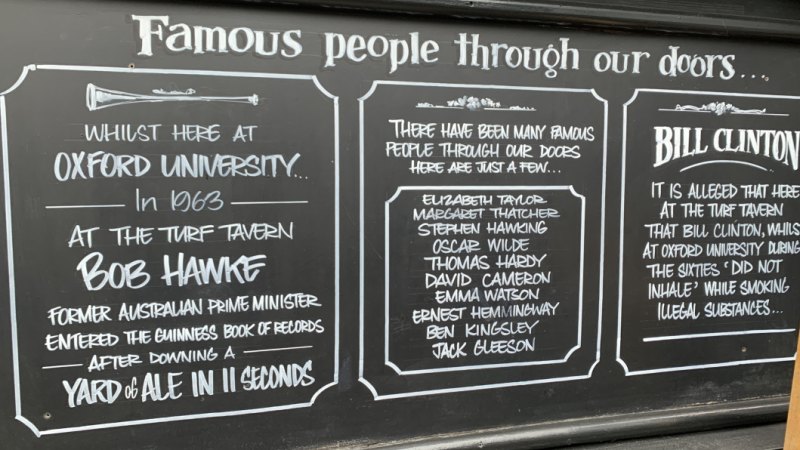 Famous people through our doors...
WHILST HERE AT
OXFORD UNIVERSITY...
In 1963
AT THE TURF TAVERN
BOB HAWKE
FORMER AUSTRALIAN PRIME MINISTER
ENTERED THE GUINNESS BOOK OF RECORDS
AFTER DOWNING A
YARD OF ALE IN 11 SECONDS
THERE HAVE BEEN MANY FAMOUS
PEOPLE THROUGH OUR DOORS
HERE ARE JUST A FEW...
ELIZABETH TAYLOR
MARGARET THATCHER
STEPHEN HAWKING
OSCAR WILDE
THOMAS HARDY
DAVID CAMERON
EMMA WATSON
ERNEST HEMMINGWAY
BEN KINGSLEY
JACK GLEESON
BILL CLINTON
IT IS ALLEGED THAT HERE
AT THE TURF TAVERN
THAT BILL CLINTON, WHILS
AT OXFORD UNIVERSITY DURING
THE SIXTIES 'DID NOT
INHALE' WHILE SMOKING
ILLEGAL SUBSTANCES...